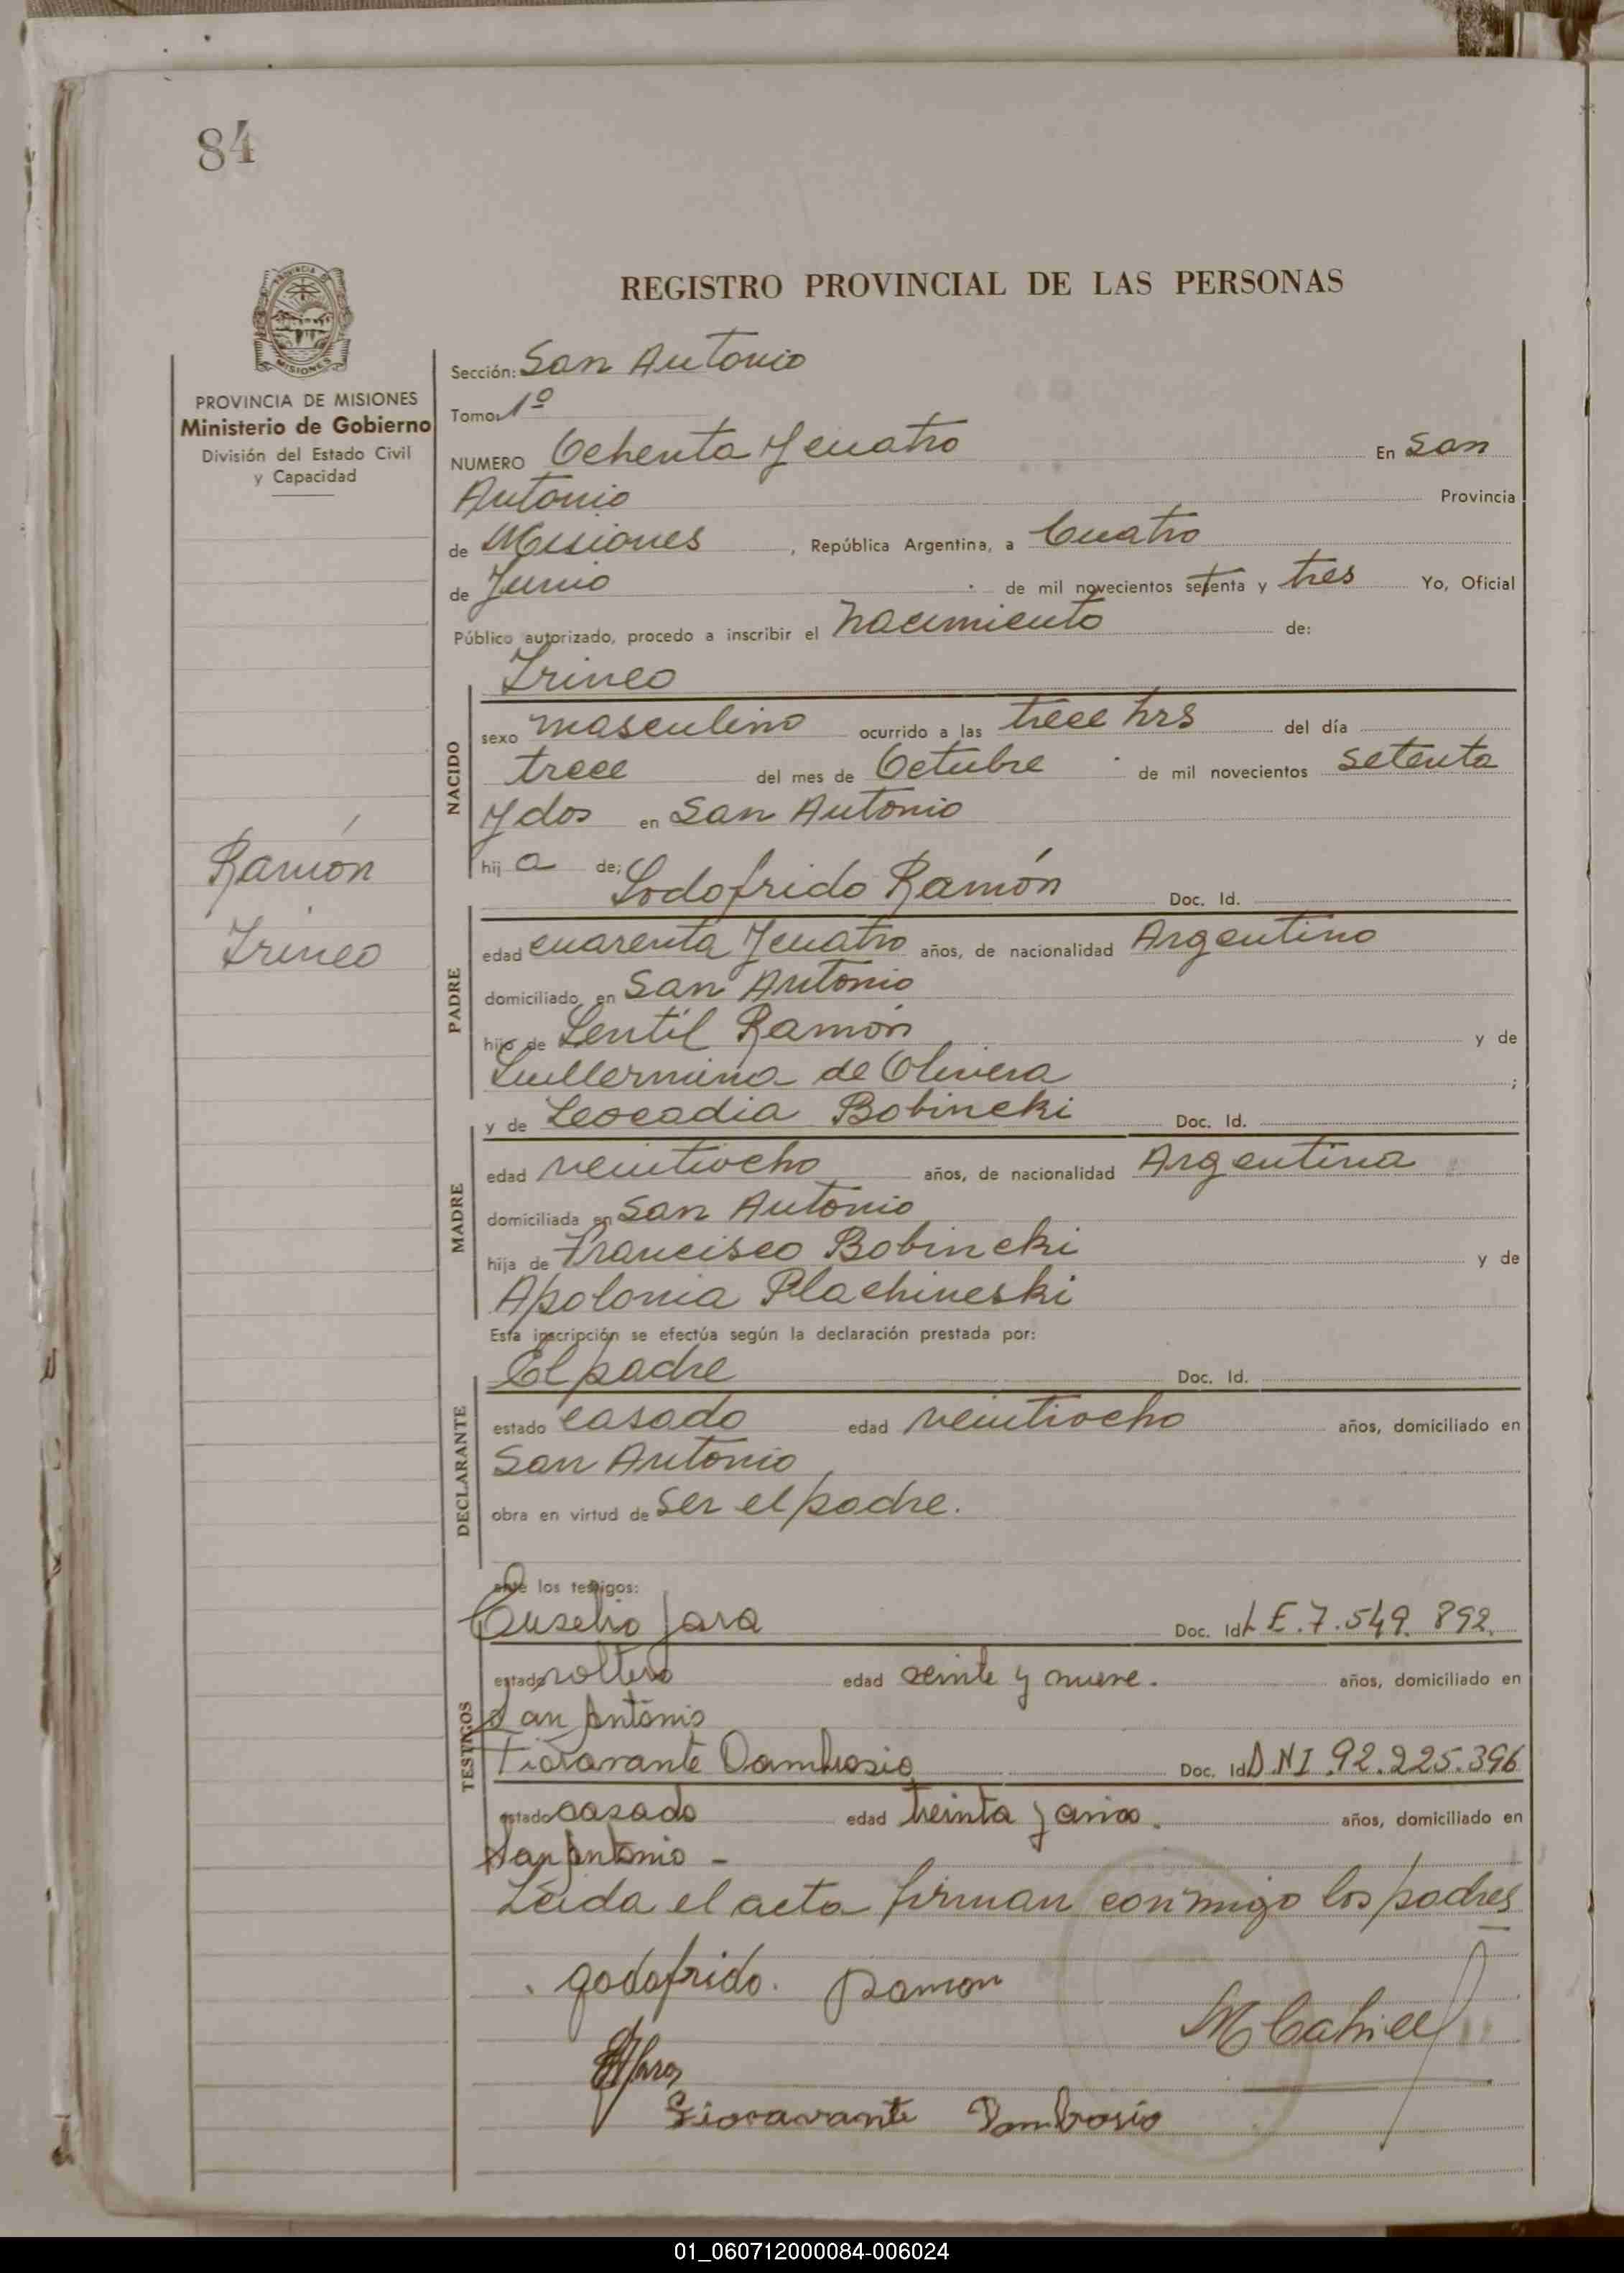 84
REGISTRO PROVINCIAL DE LAS PERSONAS
PROVINCIA DE
MISIONES
PROVINCIA DE MISIONES
Ministerio de Gobierno
División del Estado Civil
y Capacidad
Ramón
Irineo
Sección: San Antonio
Tomo: 1º
NUMERO Ochenta y cuatro En San
Antonio Provincia
de Misiones, República Argentina, a Cuatro
de Junio de mil novecientos setenta y tres Yo, Oficial
Público autorizado, procedo a inscribir el nacimiento de:
Irineo
NACIDO
sexo masculino ocurrido a las trece hrs del día
trece del mes de Octubre de mil novecientos setenta
y dos en San Antonio
hij a de: Godofrido Ramón Doc. Id.
PADRE
edad cuarenta y cuatro años, de nacionalidad Argentino
domiciliado en San Antonio
hijo de Gentil Ramón y de
Guillermina de Olivera;
y de Leocadia Bobincki Doc. Id.
MADRE
edad veintiocho años, de nacionalidad Argentina
domiciliada en San Antonio
hija de Francisco Bobincki y de
Apolonia Plachineski
Esta inscripción se efectúa según la declaración prestada por:
El padre Doc. Id.
DECLARANTE
estado casado edad veintiocho años, domiciliado en
San Antonio
obra en virtud de ser el padre.
ante los testigos:
TESTIGOS
Euselio Jara Doc. Id L E. 7.549.892.
estado soltero edad veinte y nueve. años, domiciliado en
San Antonio
Fioravante Dambrosio Doc. Id D.N.I 92.225.396
estado casado edad treinta y años, domiciliado en
San Antonio -
Leida el acta firman conmigo los padres
godofrido. Ramon
Fioravante Dambrosio
01_060712000084-006024